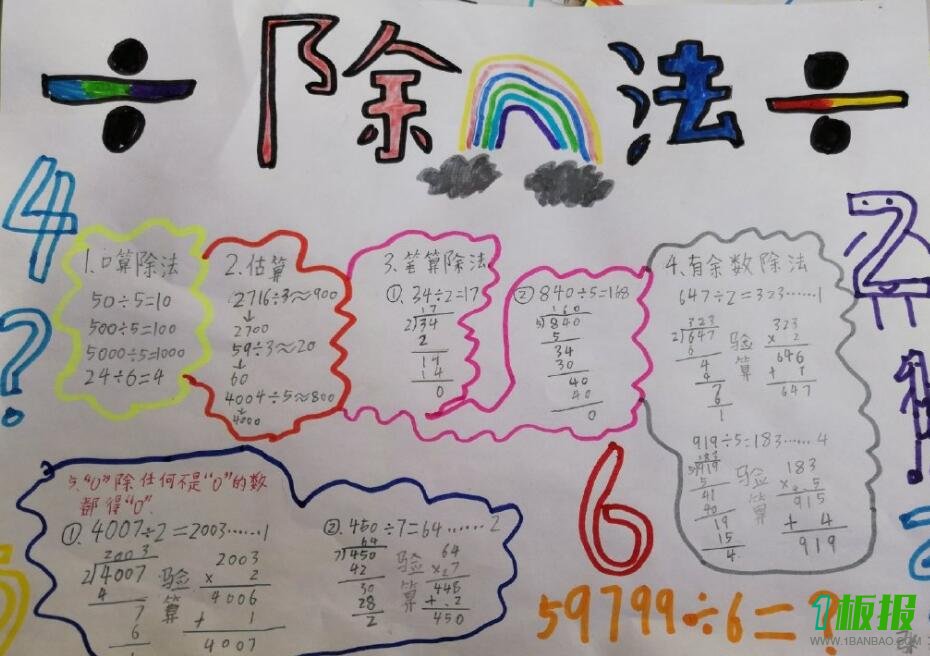 ÷ 除法 ÷
4
2
?
1
1.口算除法
50÷5=10
500÷5=100
5000÷5=1000
24÷6=4
2.估算
2716÷3≈900
↓
2700
59÷3≈20
↓
60
4004÷5≈800
↓
4000
3.笔算除法
①.34÷2=17
17
2)34
2
14
14
0
②840÷5=168
160
5)840
5
34
30
40
40
0
4.有余数除法
647÷2=323……1
323
2)647
6
4
4
7
6
1
验算
323
× 2
646
+ 1
647
919÷5=183……4
183
5)919
5
41
40
19
15
4
验算
183
× 5
915
+ 4
919
5."0"除任何不是"0"的数
都得"0".
①.4007÷2=2003……1
2003
2)4007
4
7
6
1
验算
2003
× 2
4006
+ 1
4007
②.450÷7=64……2
64
7)450
42
30
28
2
验算
64
× 7
448
+ 2
450
6
59799÷6=?
1板报
WWW.1BANBAO.COM